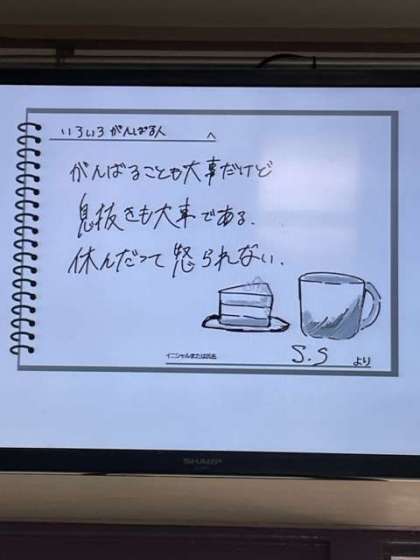 いろいろがんばる人 へ
がんばることも大事だけど
息抜きも大事である.
休んだって怒られない.
S.S
イニシャルまたは氏名 より
SHARP